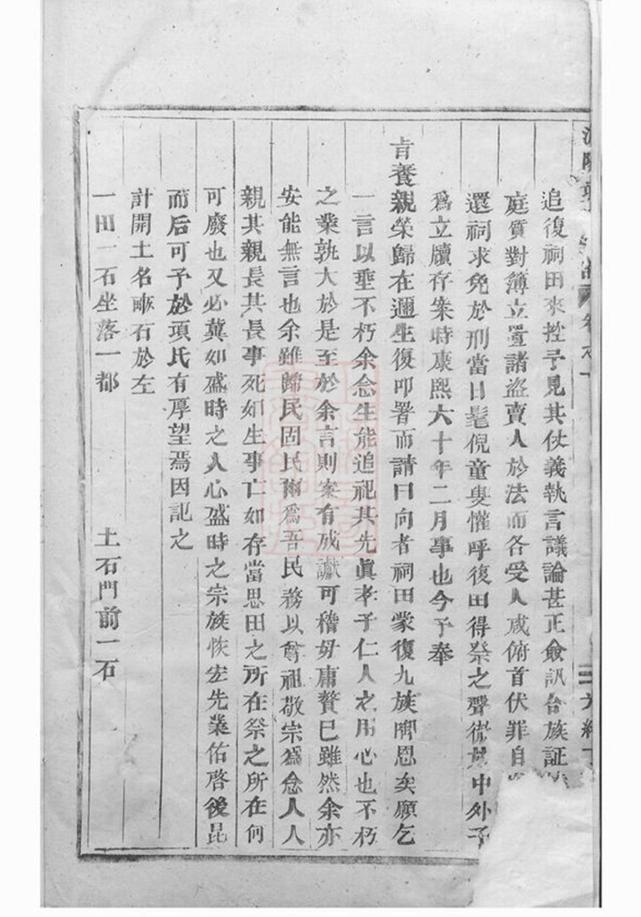 追復祠田來控予見其仗義執言議論甚正僉訊合族証
庭質對簿立置諸盜賣人於法而各受人咸俯首伏罪自
還祠求免於刑當日髦倪童叟懽呼復田得祭之聲徹於中外予
爲立牘存案時康熙六十年二月事也今予奉
旨養親榮歸在邇生復叩署而請曰向者祠田蒙復九族啣恩矣願乞
一言以垂不朽余念生能追祀其先眞孝子仁人之用心也不朽
之業孰大於是至於余言則案有成讞可稽毋庸贅已雖然余亦
安能無言也余雖歸民固民爾爲吾民務以尊祖敬宗爲念人人
親其親長其長事死如生事亡如存當思田之所在祭之所在何
可廢也又必冀如盛時之人心盛時之宗族恢宏先業佑啓後昆
而后可予於項氏有厚望焉因記之
計開土名畝石於左
一田一石坐落一都 土石門前一石